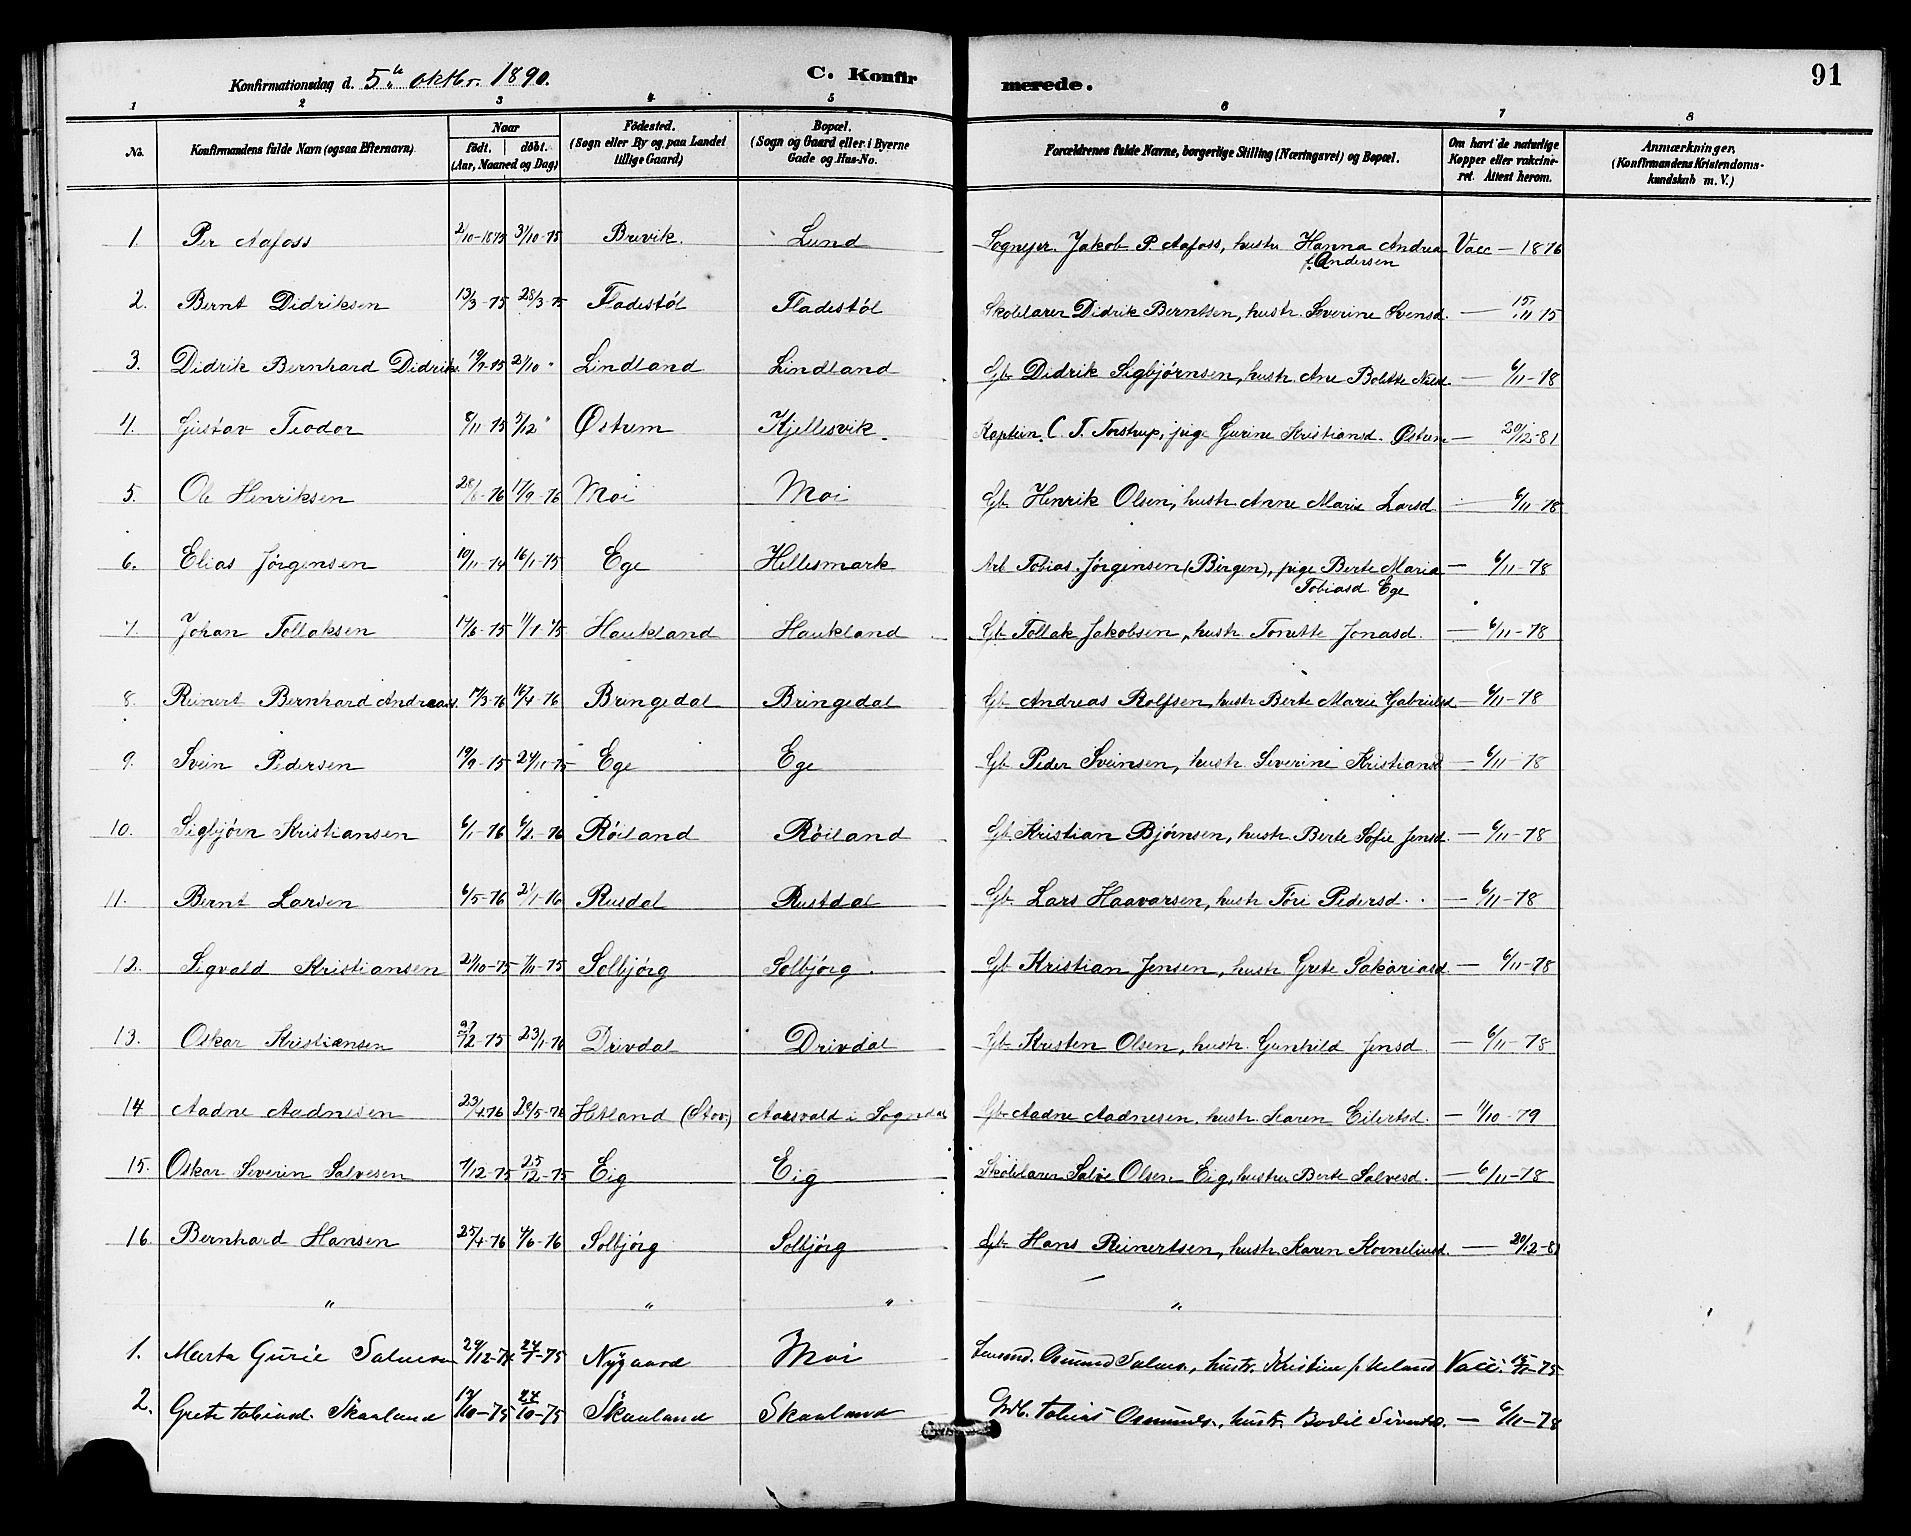 91
Konfirmationsdag d. 5te Oktbr. 1890.
C. Konfirmerede.
1 2 3 4 5 6 7 8
No. Konfirmandens fulde Navn (ogsaa Efternavn). Naar født. døbt. (Aar, Maaned og Dag) Fødested. (Sogn eller By og, paa Landet tillige Gaard) Bopæl. (Sogn og Gaard eller i Byerne Gade og Hus-No. Forældrenes fulde Navne, borgerlige Stilling (Næringsvei) og Bopæl. Om havt de naturlige Kopper eller vakcineret. Attest herom. Anmærkninger. (Konfirmandens Kristendomskundskab m. V.)
1. Per Aafoss 2/10-1875 31/10-75 Brevik. Lund Sognepr. Jakob P. Aafoss, hustr Hanna Andrea f. Andersen Vacc - 1876
2. Bernt Didriksen 13/3-75 28/3-75 Fladestøl Fladestøl Skolelærer Didrik Berntsen, hustr. Severine Svensd. — 15/11 75
3. Didrik Bernhard Didriks. 21/10 " Lindland Lindland Gb Didrik Sigbjørnsen, hustr. Ane Bolette Nilsd. — 6/11-78
4. Gustav Teodor 8/11-75 5/12 " Østrem Kjellesvik. Kaptein C. T. Torstrup, pige Gurine Kristiansd. Østrem — 20/12-81
5. Ole Henriksen 17/9-76 Moi Moi Gb Henrik Olsen, hustr Anne Marie Larsd — 6/11-78
6. Elias Jørgensen 10/11-74 16/1-75 Ege Hellesmark Arb Tobias Jørgensen (Bergen), pige Berte Maria Tobiasd. Ege — 6/11-78
7. Johan Tollaksen 17/6-75 Haukland Haukland Gb Tollak Jakobsen, hustr. Tonette Jonasd. — 6/11-78
8. Reinert Bernhard Andreass. 17/3-76 16/4-76 Bringedal Bringedal Gb Andreas Rolfsen, hustr Berte Marie Gabrielsd — 6/11-78
9. Svein Pedersen 19/9-75 24/11-75 Ege Ege Gb Peder Sveinsen, hustr Severine Kristiansd — 6/11-78
10. Sigbjørn Kristiansen 6/1-76 Røiland Røiland Gb Kristian Bjørnsen, hustr. Berte Sofie Jensd. — 6/11-78
11. Bernt Larsen 6/5-76 Rusdal Rustdal Gb. Lars Haavarsen, hustr Tøri Pedersd. — 6/11-78
12. Sigvald Kristiansen 21/10-75 7/11-75 Solbjørg Solbjørg. Gb Kristian Jensen, hustr Grete Sakariasd — 6/11-78
13. Oskar Kristiansen 27/12-75 23/1-76 Drivdal Drivdal Gb Kristen Olsen, hustr. Gunhild Jensd. — 6/11-78
14 Aadne Aadnesen 23/4 76 28/5-76 Hetland (Stav.) Aarsvald i Sogndal Gb Aadne Aadnesen, hustr. Karen Eilertsd. — 11/10-79
15. Oskar Severin Salvesen 7/12-75 25/12-75 Eig Eig Skolelærer Salve Olsen Eig, hustru Berte Salvesd. — 6/11-78
16. Bernhard Hansen 25/4-76 4/6-76 Solbjørg Solbjørg Gb Hans Reinertsen, hustr Karen Korneliusd. — 20/12-81
" " " "
1. Marta Gurie Salvesen 29/12-74 24/1-75 Nygaard Moi Osmund Salves., hustr. Kristine f. Ueland Vacc.
2. Grete Tobiasd. Skaaland 13/10-75 24/10-75 Skaaland Skaaland Gdb. Tobias Osmunds., hustr. Bodil Sivertsd. — 6/11-78